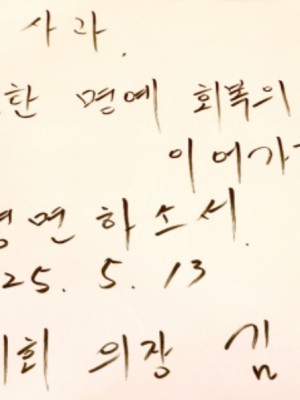 사과.
한 명예 회복의
이어가
영면하소서.
25. 5. 13
의회 의장 김